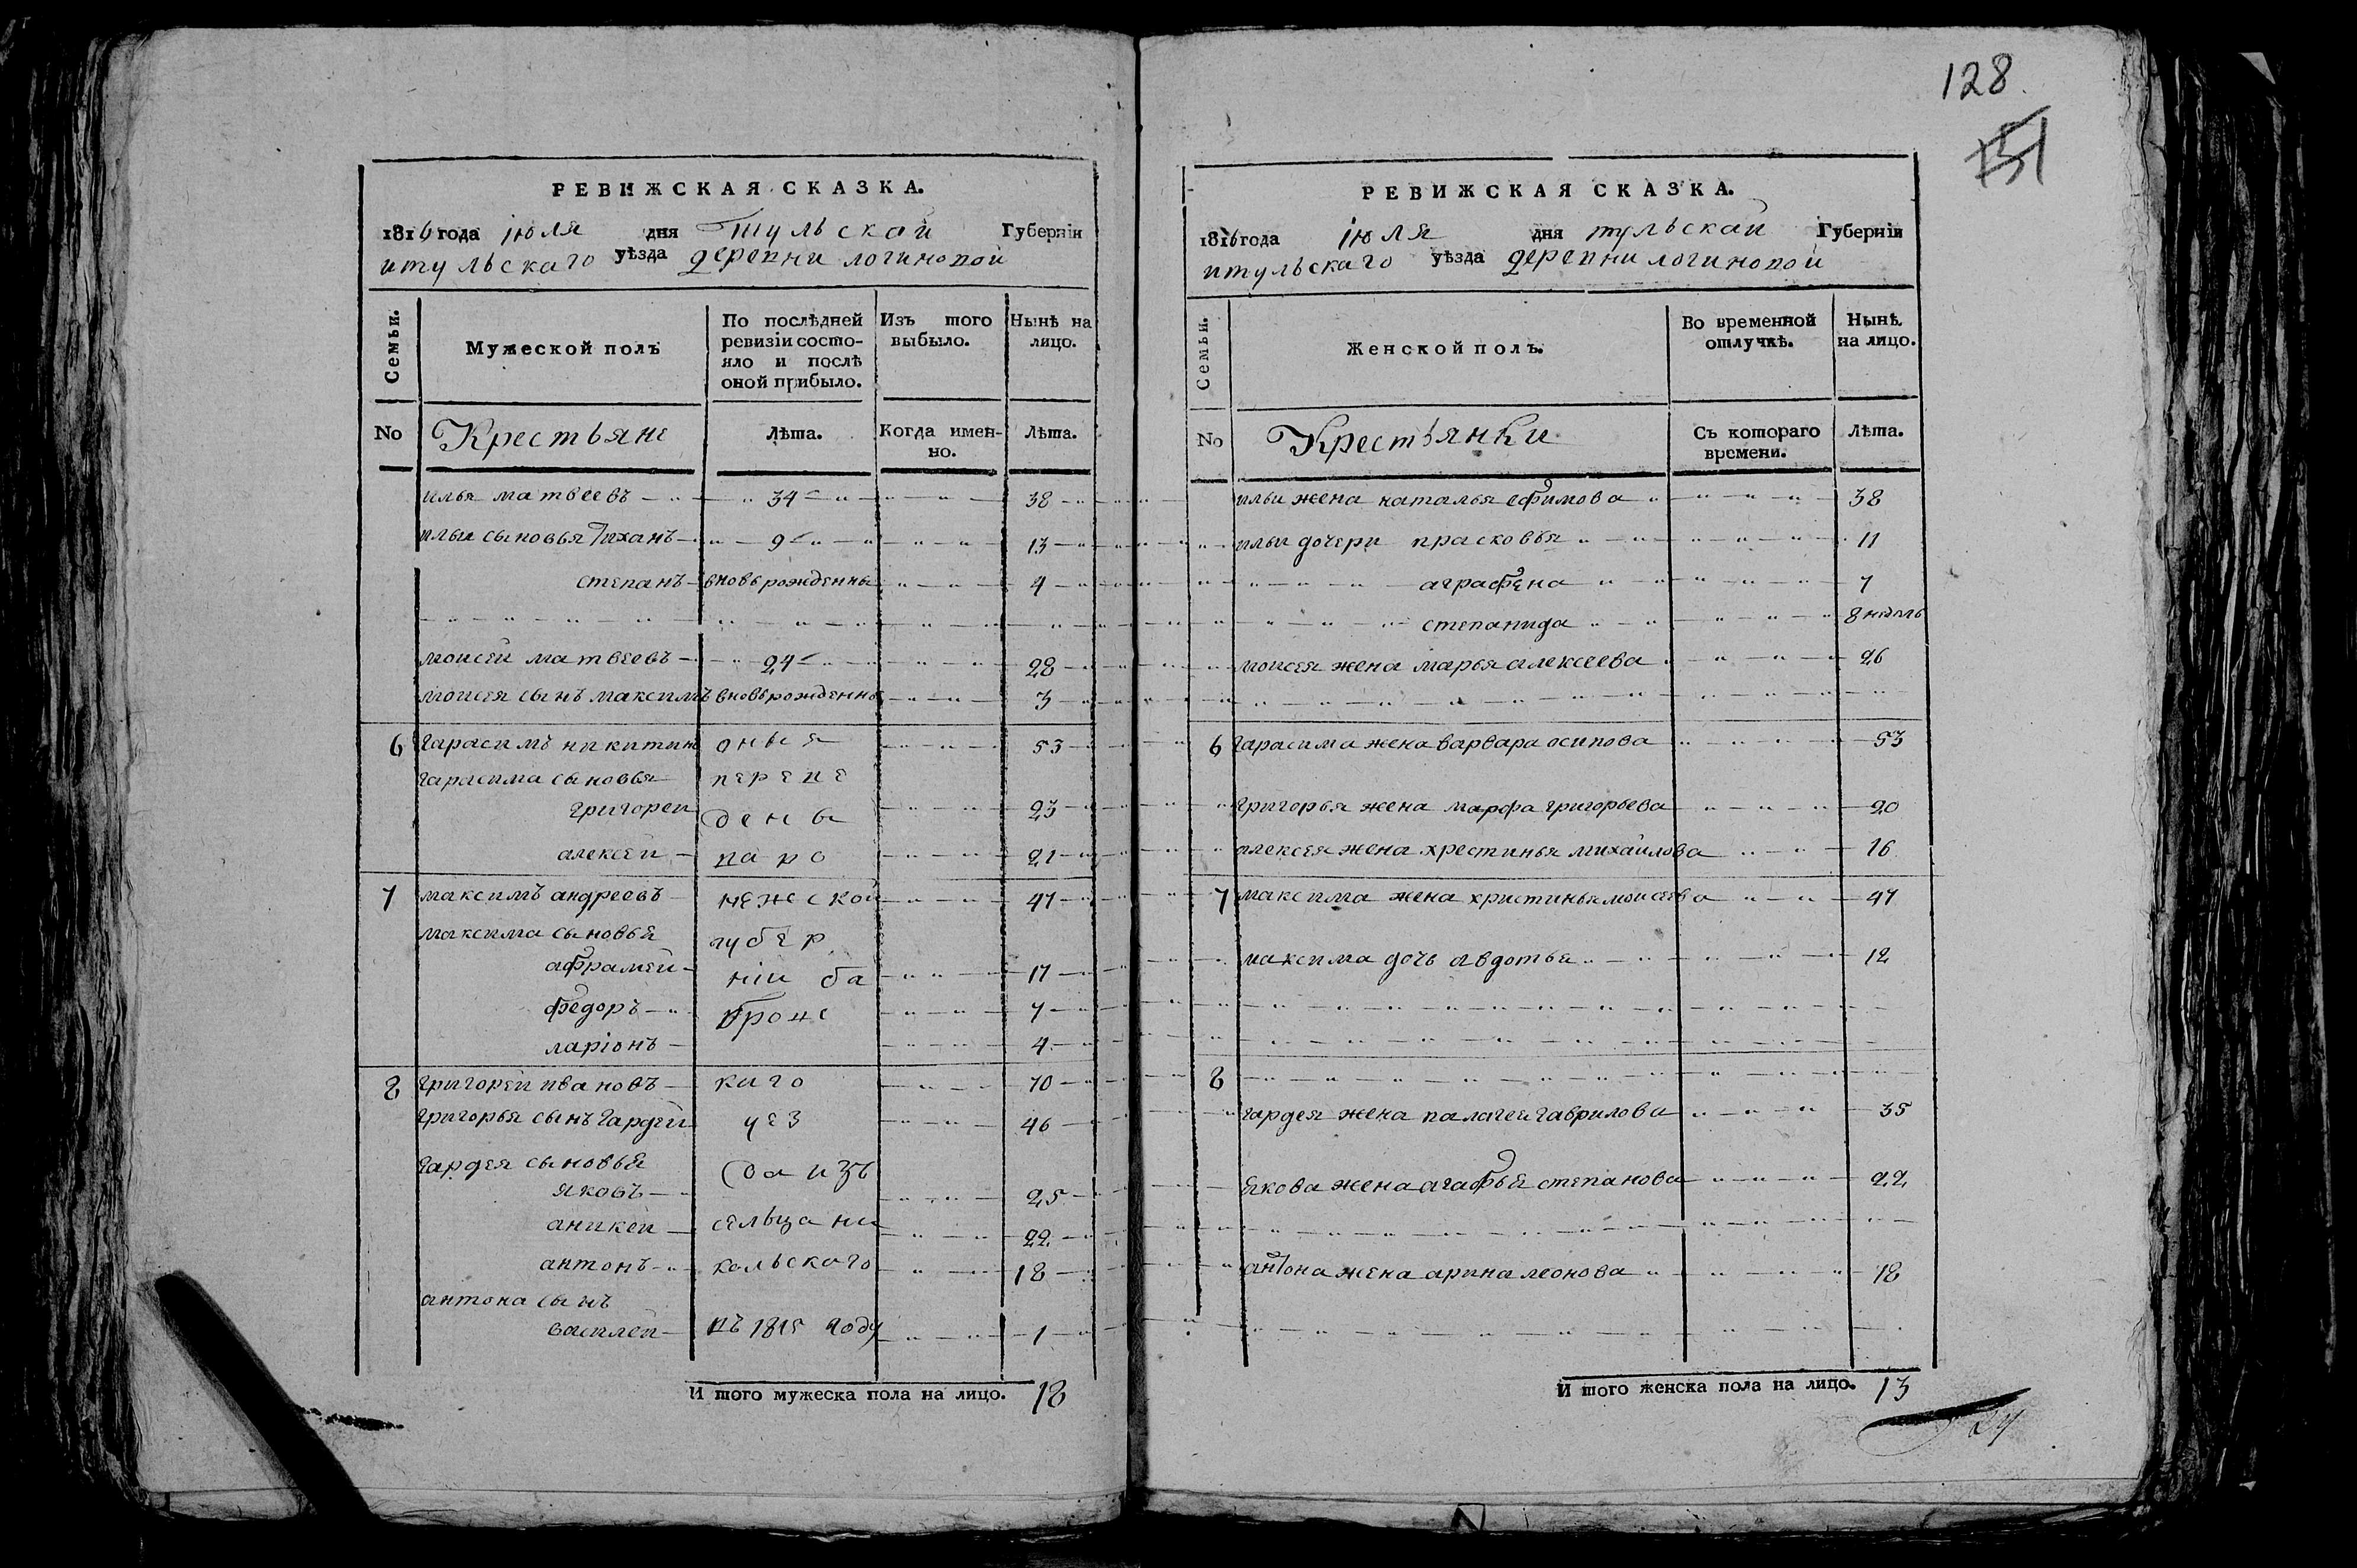 128
151
РЕВИЖСКАЯ СКАЗКА.
1816 года июля дня тульскай Губерніи
итульскаго уѣзда деревни логиновой
Семьи.
Мужеской полъ
По послѣдней ревизіи состояло и послѣ оной прибыло.
Изъ того выбыло.
Нынѣ на лицо.
No
Крестьяне
лѣта.
Когда именно.
Лѣта.
илья матвеевъ 34 38
ильи сыновья Тиханъ 9 13
степанъ вновь рожденны 4
моисеи матвеевъ 24 28
моисея сынъ максимъ вновь рожденны 3
6 гарасимъ никитин оныя 53
гарасима сыновья переве
григореи дены 23
алексеи варо 21
7 максимъ андреевъ нежской 47
максима сыновья губер
афрамеи ніи ба 17
федоръ бронс 7
ларіонъ 4
8 григореи ивановъ каго 70
григорья сынъ гардеи уез 46
гардея сыновья да изъ
яковъ 25
аникеи сельца ни 22
антонъ кольскаго 18
антона сынъ
василеи въ 1815 году 1
И того мужеска пола на лицо. 18
РЕВИЖСКАЯ СКАЗКА.
1816 года июля дня тульскай Губерніи
итульскаго уѣзда деревни логиновой
Семьи.
Женской полъ.
Во временной отлучкѣ.
Нынѣ на лицо.
No
Крестьянки
Съ котораго времени.
Лѣта.
ильи жена наталья ефимова 38
ильи дочери прасковья 11
аграфена 7
степанида 8 недель
моисея жена марья алексеева 26
6 гарасима жена варвара осипова 53
григорья жена марфа григорьева 20
алексея жена хрестинья михаилова 16
7 максима жена христинья моисеева 47
максима дочь авдотья 12
8
гардея жена палагея гаврилова 35
якова жена агафья степанова 22
антона жена арина леонова 18
И того женска пола на лицо. 13